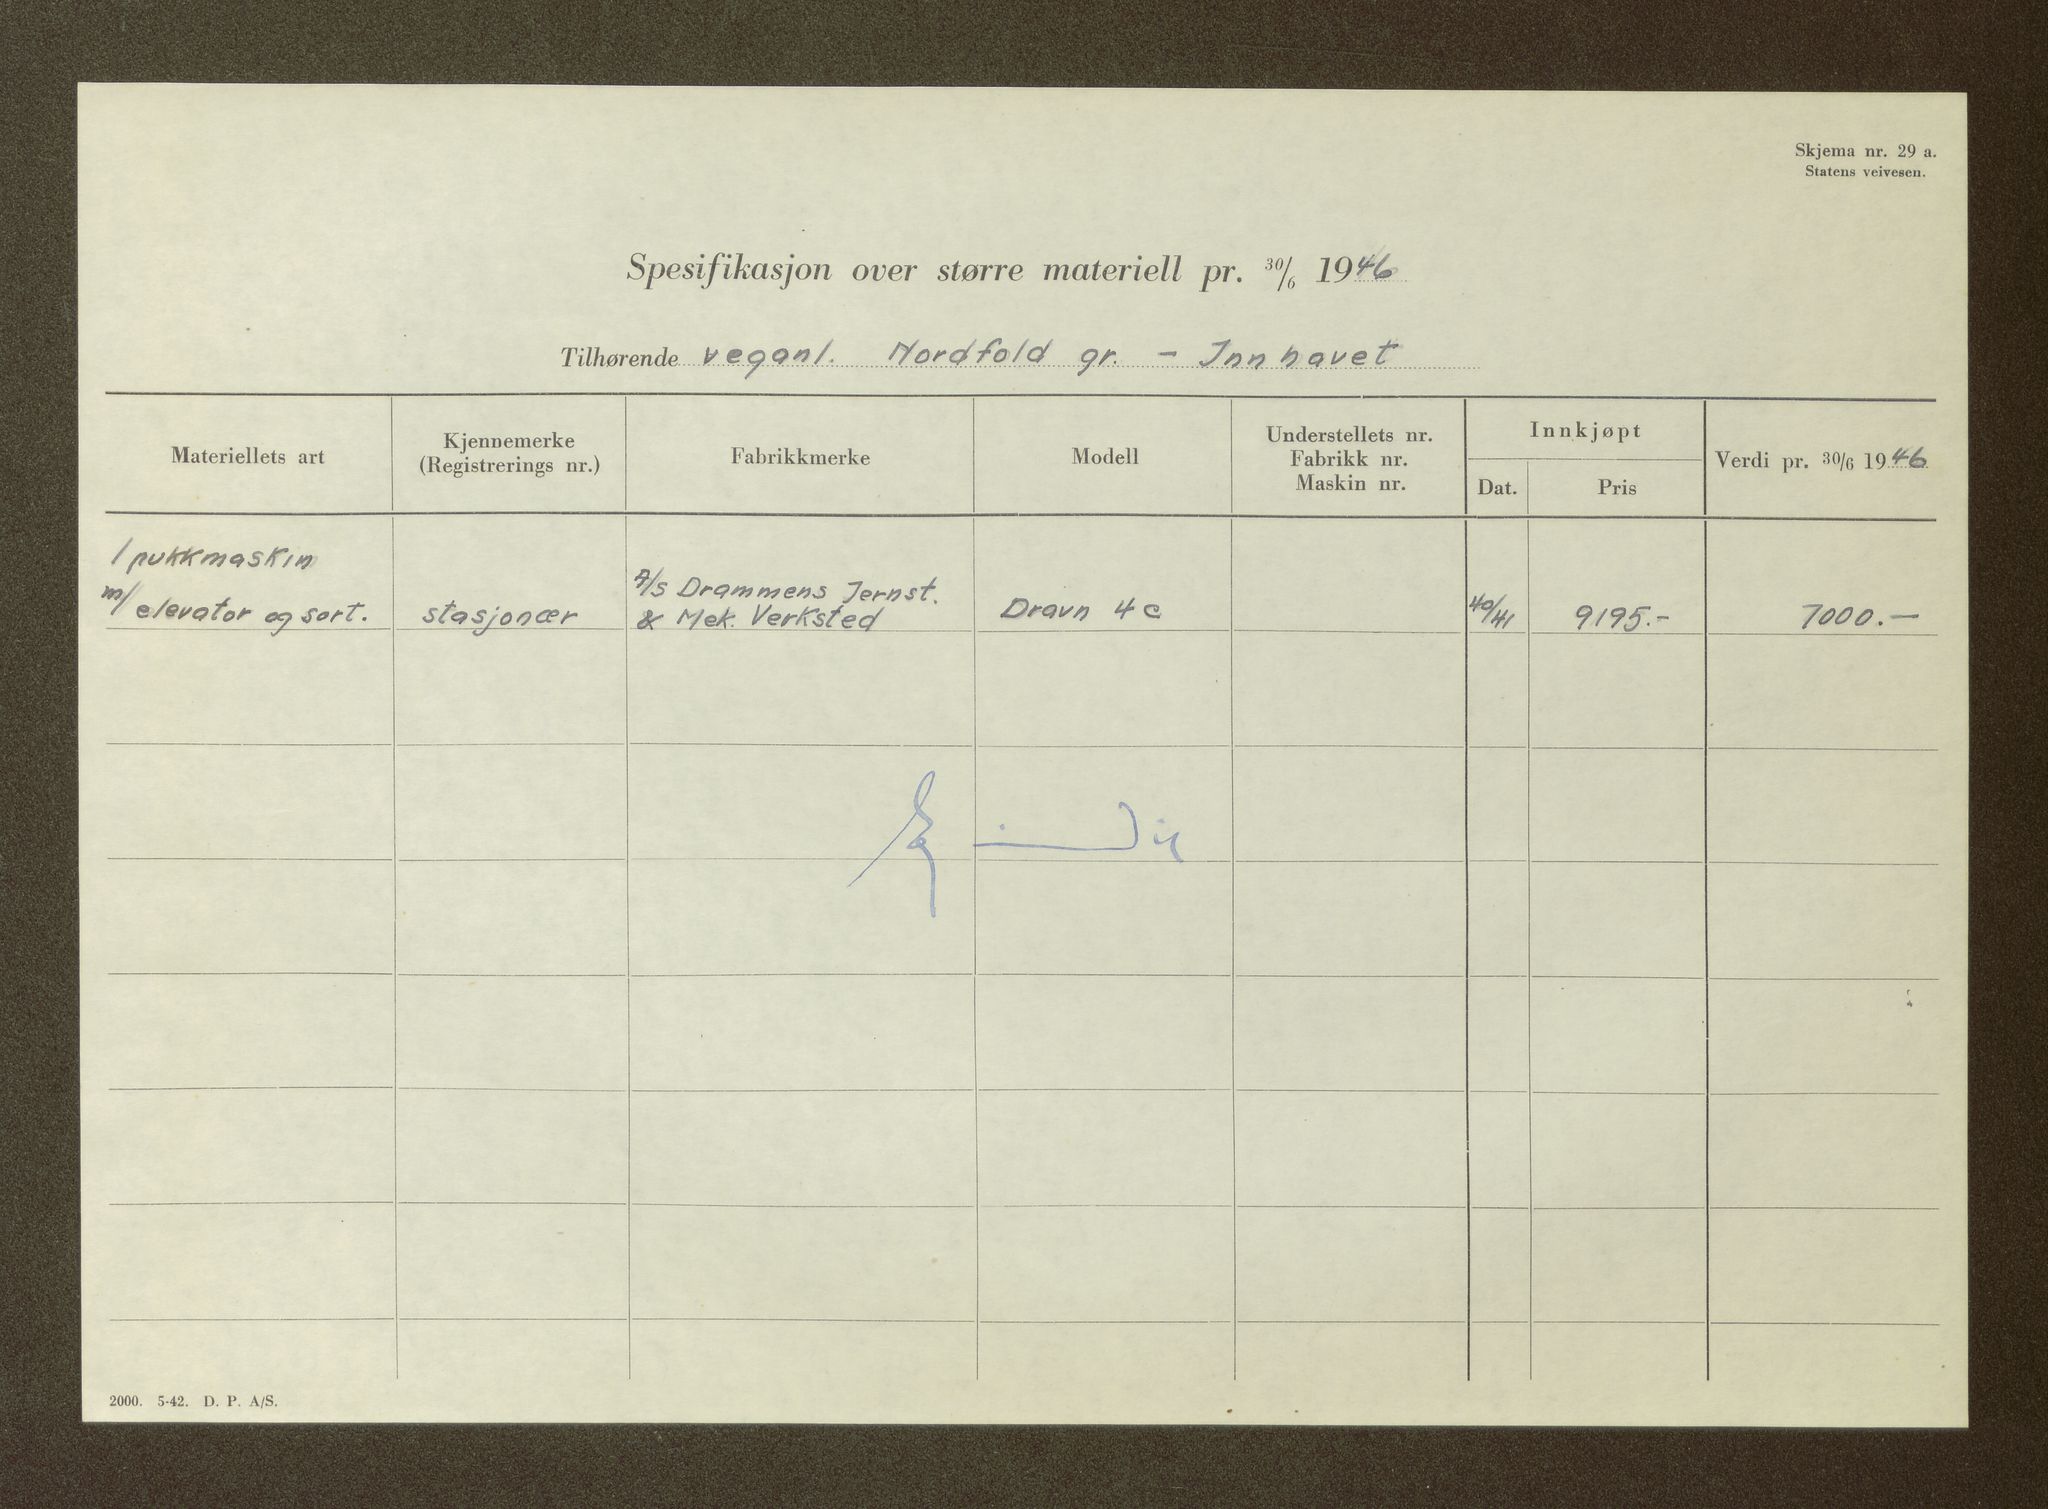 Skjema nr. 29 a.
Statens veivesen.
Spesifikasjon over større materiell pr. 30/6 1946
Tilhørende veganl. Nordfold gr. - Innhavet
Materiellets art
Kjennemerke
(Registrerings nr.)
Fabrikkmerke
Modell
Understellets nr.
Fabrikk nr.
Maskin nr.
Innkjøpt
Dat.
Pris
Verdi pr. 30/6 1946
1 pukkmaskin
m/ elevator og sort.
stasjonær
A/S Drammens Jernst.
& Mek. Verksted
Dravn 4c
40/41
9195.-
7000.-
2000. 5-42. D. P. A/S.